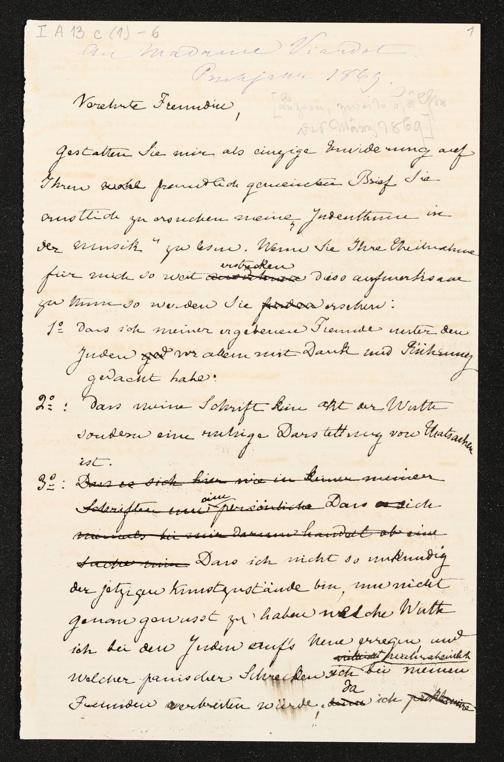 I A 13 c (1) - 6
1
An Madame Viardot.
Frühjahr 1869.
Verehrte Freundin,
[Luzern,
März 1869]
Gestatten Sie mir als einzige Erwiderung auf
Ihren wohl freundlich gemeinten Brief Sie
ernstlich zu ersuchen meine „Judenthum in
der Musik" zu lesen. Wenn Sie Ihre Theilnahme
erstrecken
für mich so weit diess aufmerksam
zu thun so werden Sie ersehen:
1º Dass ich meiner ergebenen Freunde unter den
Juden vor allem mit Dank und Rührung
gedacht habe.
2º: Dass meine Schrift kein Akt der Wuth
sondern eine ruhige Darstellung von Thatsachen
ist.
3º: Dass es sich hier wie in keiner meiner
eine
Schriften um persönliche Dass sich
niemals bei mir darum handelt ob eine
Sache Dass ich nicht so unkundig
der jetzigen Kunstzustände bin, um nicht
genau gewusst zu haben welche Wuth
ich bei den Juden aufs Neue erregen und
wahrscheinlich
welcher panischer Schrecken sich bei meinen
da
Freunden verbreiten würde, ich